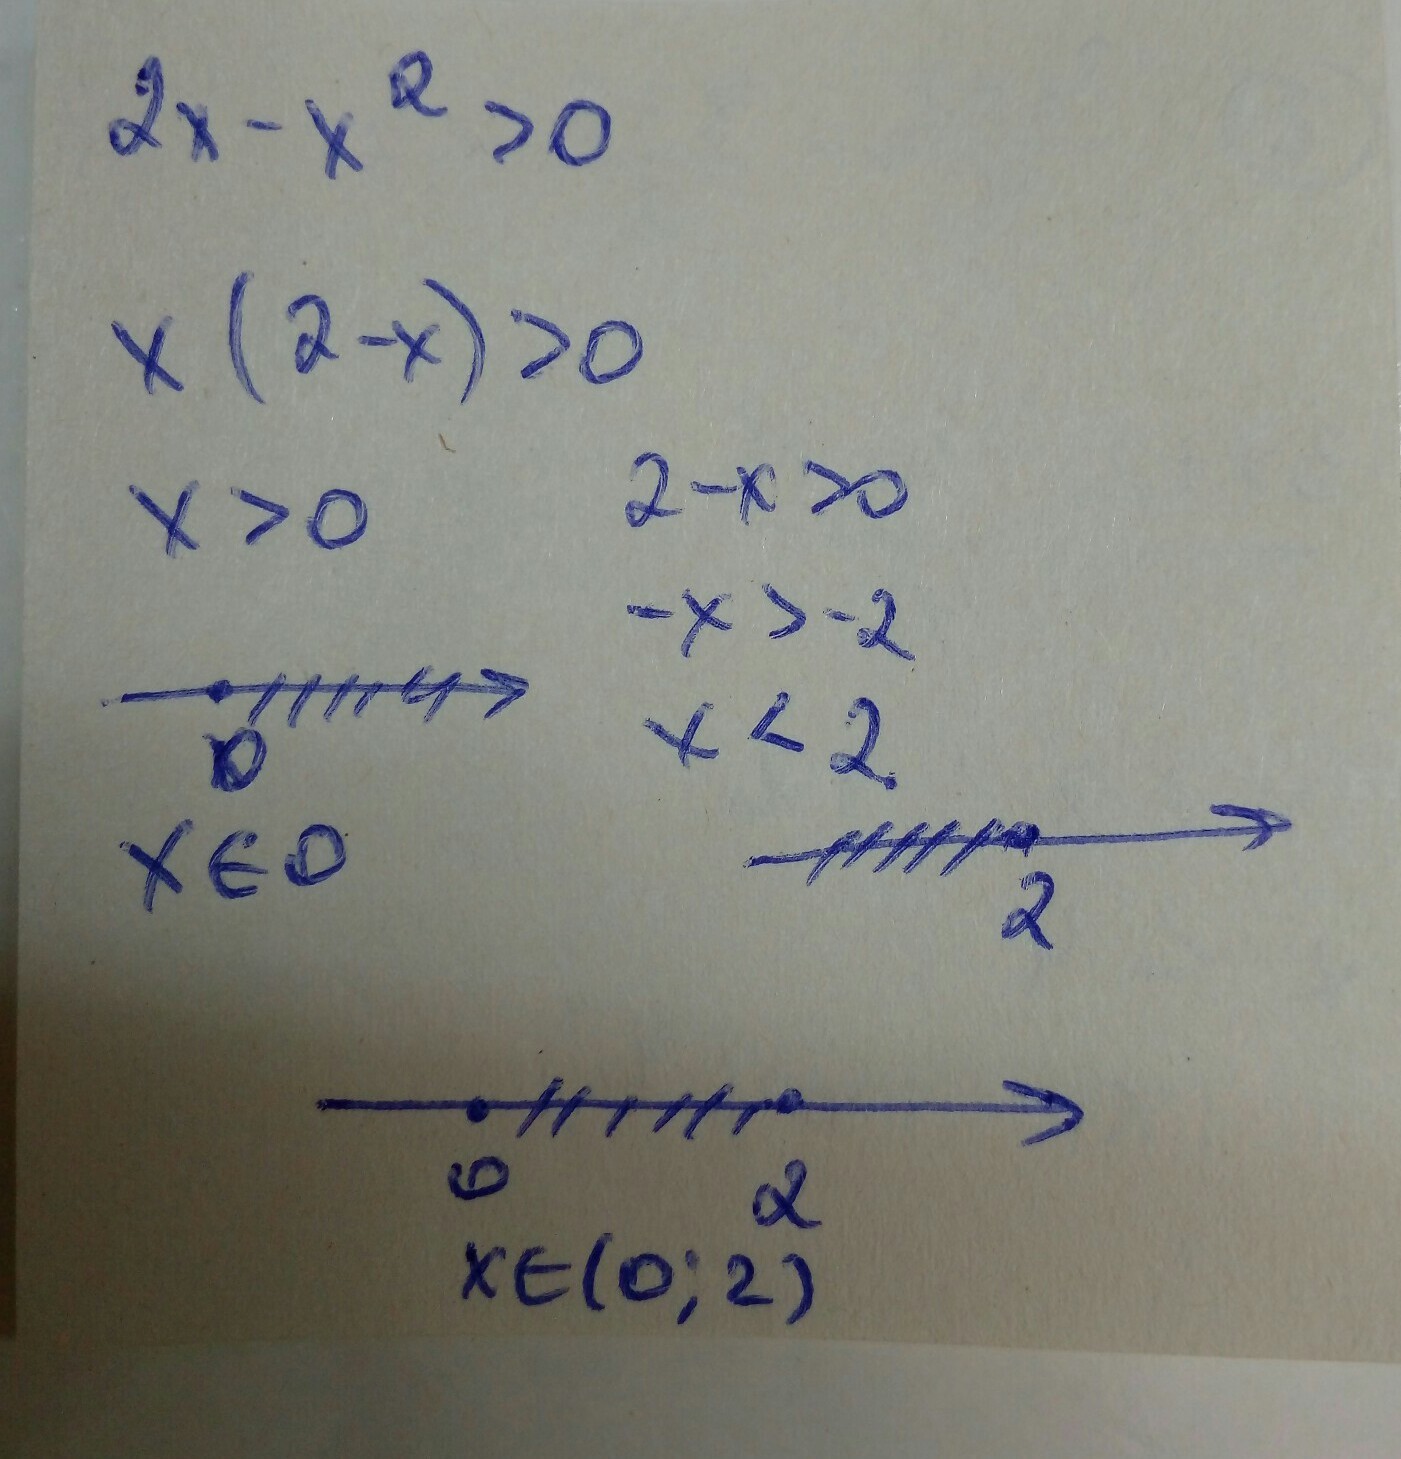 2x-x² >0
x(2-x)>0
x>0
2-x>0
-x>-2
x<2
0
x∈0
2
0 2
x∈(0;2)